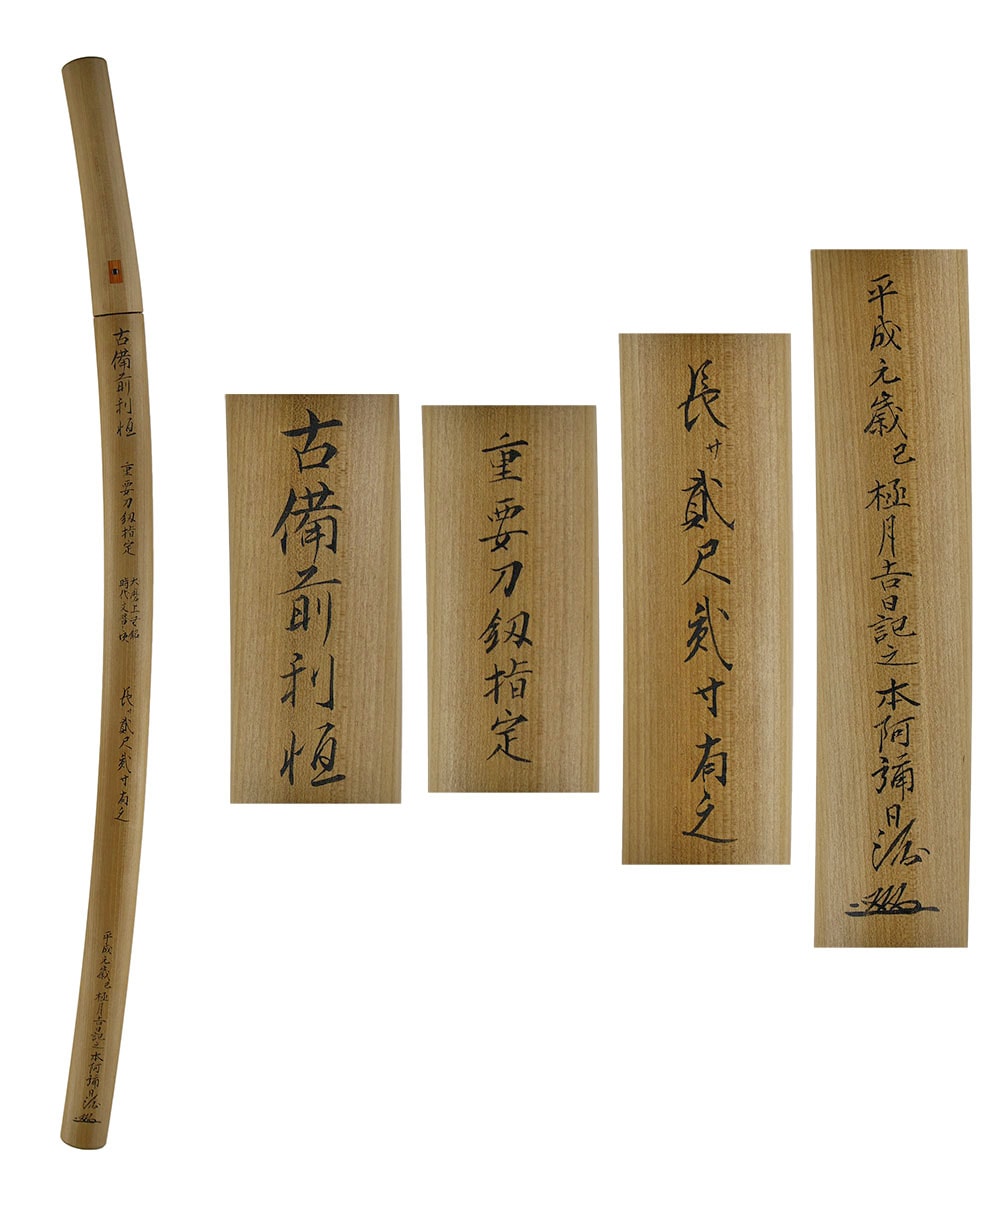 古備前利恒
重要刀釼指定
大磨上
時代
長サ貳尺貳寸有之
平成元歳己極月吉日記之本阿彌日洲
古備前利恒
重要刀釼指定
長サ貳尺貳寸有之
平成元歳己極月吉日記之本阿彌日洲